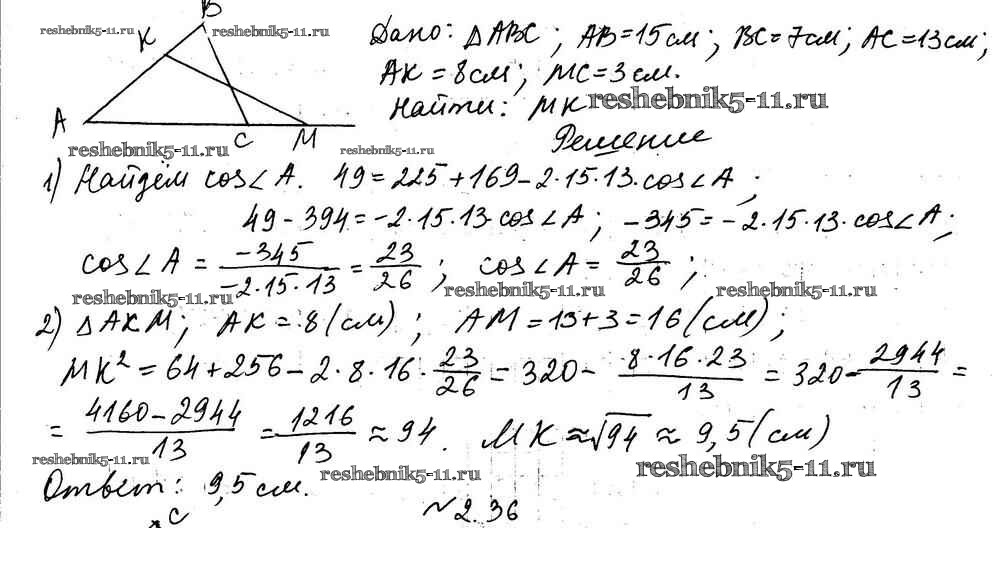 B
K
reshebnik5-11.ru reshebnik5-11.ru
Дано: △ABC; AB=15см; BC=7см; AC=13см;
AK=8см; MC=3см.
Найти: MK reshebnik5-11.ru
A C M
reshebnik5-11.ru reshebnik5-11.ru
Решение
1) Найдём cos∠A. 49=225+169-2·15·13·cos∠A;
49-394=-2·15·13·cos∠A; -345=-2·15·13·cos∠A;
cos∠A = -345/-2·15·13 = 23/26; cos∠A = 23/26;
reshebnik5-11.ru reshebnik5-11.ru reshebnik5-11.ru
2) △AKM; AK=8(см); AM=13+3=16(см);
MK²=64+256-2·8·16·23/26=320-8·16·23/13=320-2944/13=
=4160-2944/13=1216/13≈94. MK≈√94≈9,5(см)
reshebnik5-11.ru reshebnik5-11.ru reshebnik5-11.ru
Ответ: 9,5см.
C №2.36